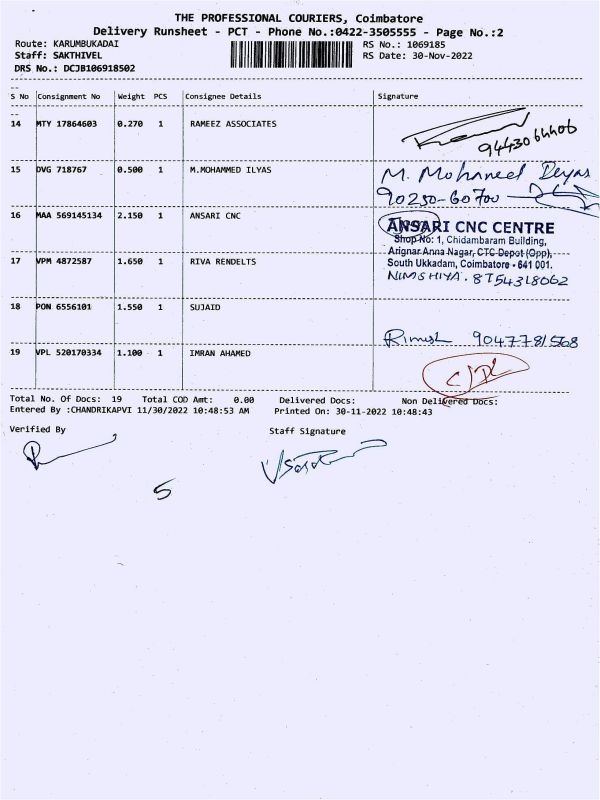 THE PROFESSIONAL COURIERS, Coimbatore
Delivery Runsheet - PCT - Phone No.:0422-3505555 - Page No.:2
Route: KARUMBUKADAI RS No.: 1069185
Staff: SAKTHIVEL RS Date: 30-Nov-2022
DRS No.: DCJB106918502
S No Consignment No Weight PCS Consignee Details Signature
14 MTY 17864603 0.270 1 RAMEEZ ASSOCIATES
94430 64406
15 DVG 718767 0.500 1 M.MOHAMMED ILYAS M.
90250-60700
16 MAA 569145134 2.150 1 ANSARI CNC ANSARI CNC CENTRE
Shop No: 1, Chidambaram Building,
Arignar Anna Nagar, CTC Depot (Opp),
17 VPM 4872587 1.650 1 RIVA RENDELTS South Ukkadam, Coimbatore - 641 001.
NIMSHIYA. 8754318062
18 PON 6556101 1.550 1 SUJAID
9047781568
19 VPL 520170334 1.100 1 IMRAN AHAMED
Total No. Of Docs: 19 Total COD Amt: 0.00 Delivered Docs: Non Delivered Docs:
Entered By :CHANDRIKAPVI 11/30/2022 10:48:53 AM Printed On: 30-11-2022 10:48:43
Verified By Staff Signature
5